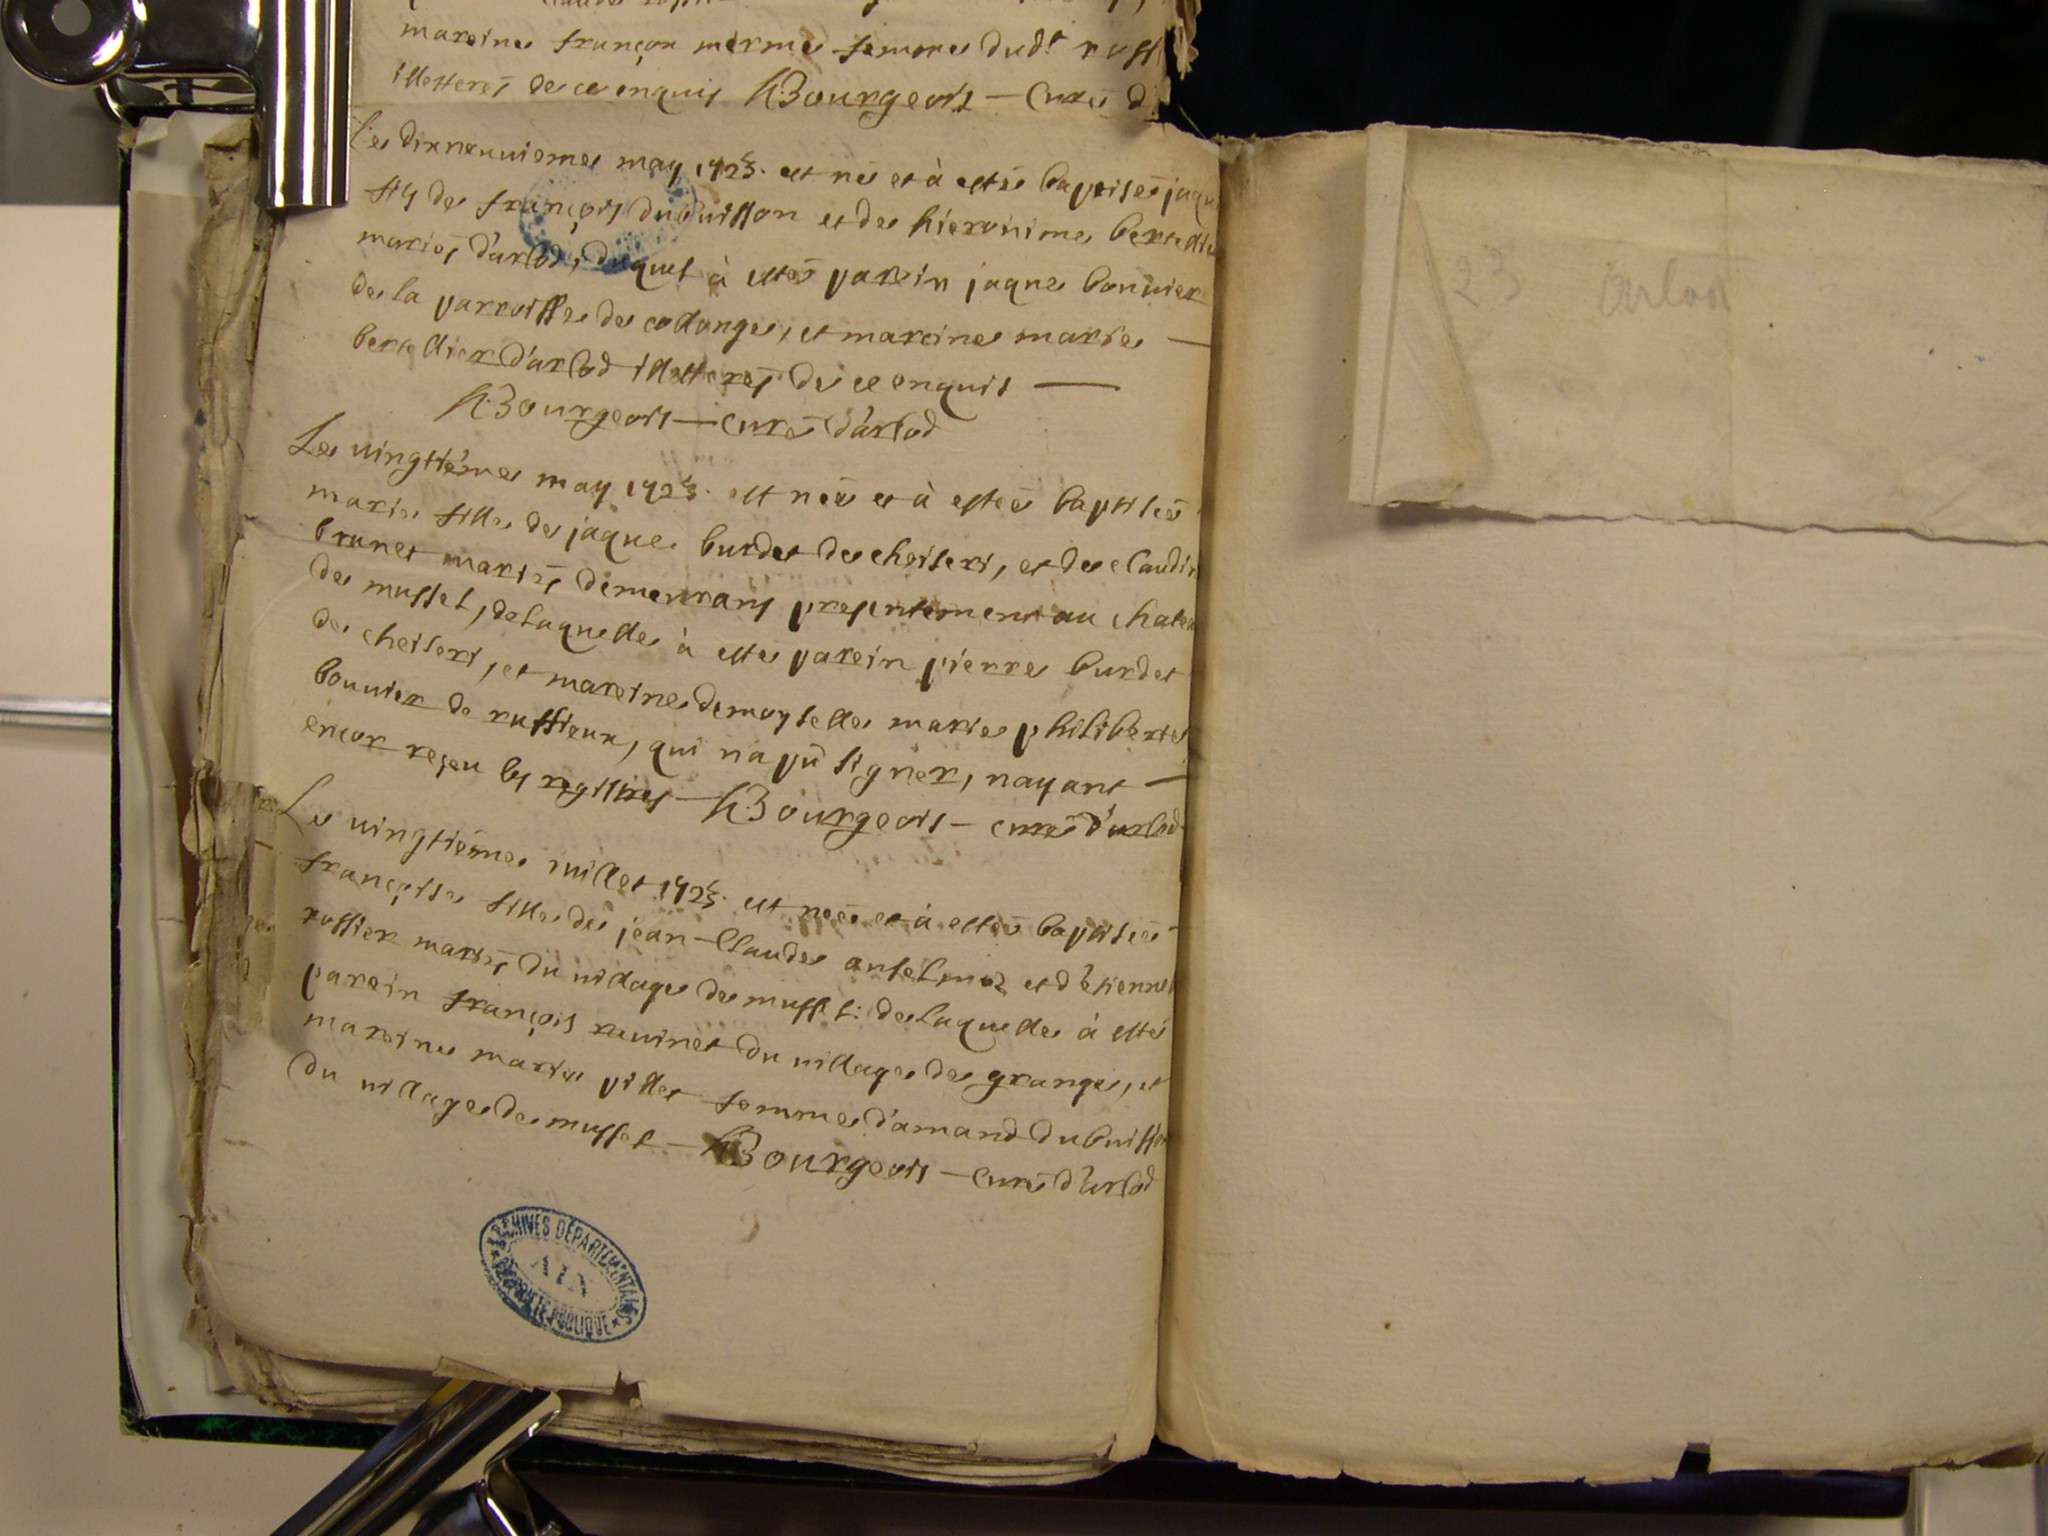 mareine françon merme femme dud.t ruff
illetterés de ce enquis h:Bourgeois – Curé d
Le dixneuvieme may 1723. est né et à esté baptisé jaqu
fils de françois dubuisson et de hieronime bertellie
mariés d'arlod, duquel à esté parein jaque bouvier
de la parroisse de collonge, et mareine marie —
bertellier d'arlod illetterés de ce enquis —
h:Bourgeois — Curé d'arlod
Le vingtiéme may 1723. est née et à estée baptisée
marie fille de jaque burdet de cheiseri, et de claudin
brunet mariés demeurans presentement au chatea
de mussel, de laquelle à esté parein pierre burdet
de cheiseri, et mareine demoyselle marie philiberte
bouvier de ruffieux, qui n'a pû signer, nayant —
encor reçeu les registres — h:Bourgeois — curé d'arlod
Le vingtiéme iuillet 1723. est née et à estée baptisée
françoise fille de jean-Claude anselmoz et d'etienne
ruffier mariés du village de mussel: de laquelle à esté
parein françois ravinet du village de grange, et
mareine marie pillet femme d'amand dubuisson
du village de mussel — h:Bourgeois — curé d'arlod
ARCHIVES DÉPARTEMENTALES
AIN
PROPRIÉTÉ PUBLIQUE
23 arlod